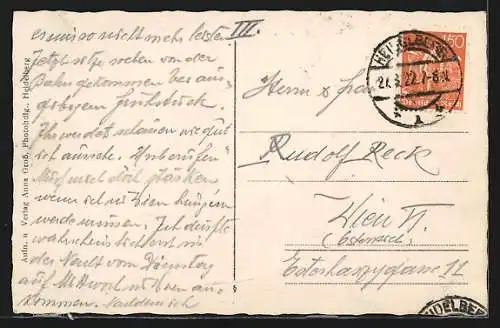 III.
es uns so nicht mehr leisten
Jetzt sitze soeben von der
Bahn gekommen bei aus-
gebogenem Frühstück.
Ihr werdet schauen wie gut
ich aussehe. Unberufen
Muss mich doch stärken
wenn ich in Wien hungern
werde müssen. Ich dürfte
wahrscheinlich erst in
der Nacht vom Dienstag
auf Mittwoch in Wien an-
kommen.
Aufn. u. Verlag Anna Groß, Photohdlg., Heidelberg
HEIDELBERG
27.3.22.7-8.N.
150
Herrn &
Rudolf Reck
Wien VI
Österreich
Esterhazygasse 11
HEIDELBE